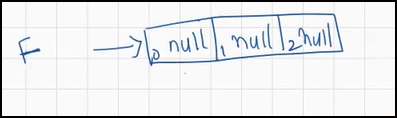 F → 0 null 1 null 2 null